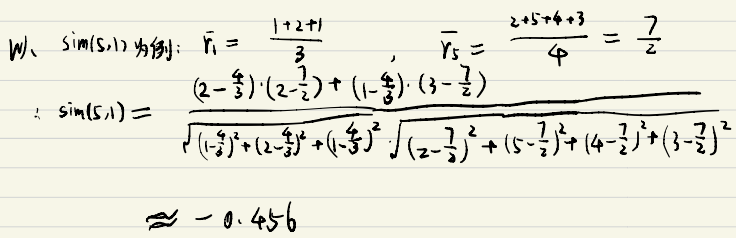 以、sim(5,1)为例: r̄₁ = (1+2+1)/3 , r̄₅ = (2+5+4+3)/4 = 7/2
∴ sim(5,1) = ((2-4/3)·(2-7/2) + (1-4/3)·(3-7/2)) / (√((1-4/3)²+(2-4/3)²+(1-4/3)²)·√((2-7/2)²+(5-7/2)²+(4-7/2)²+(3-7/2)²))
≈ -0.456